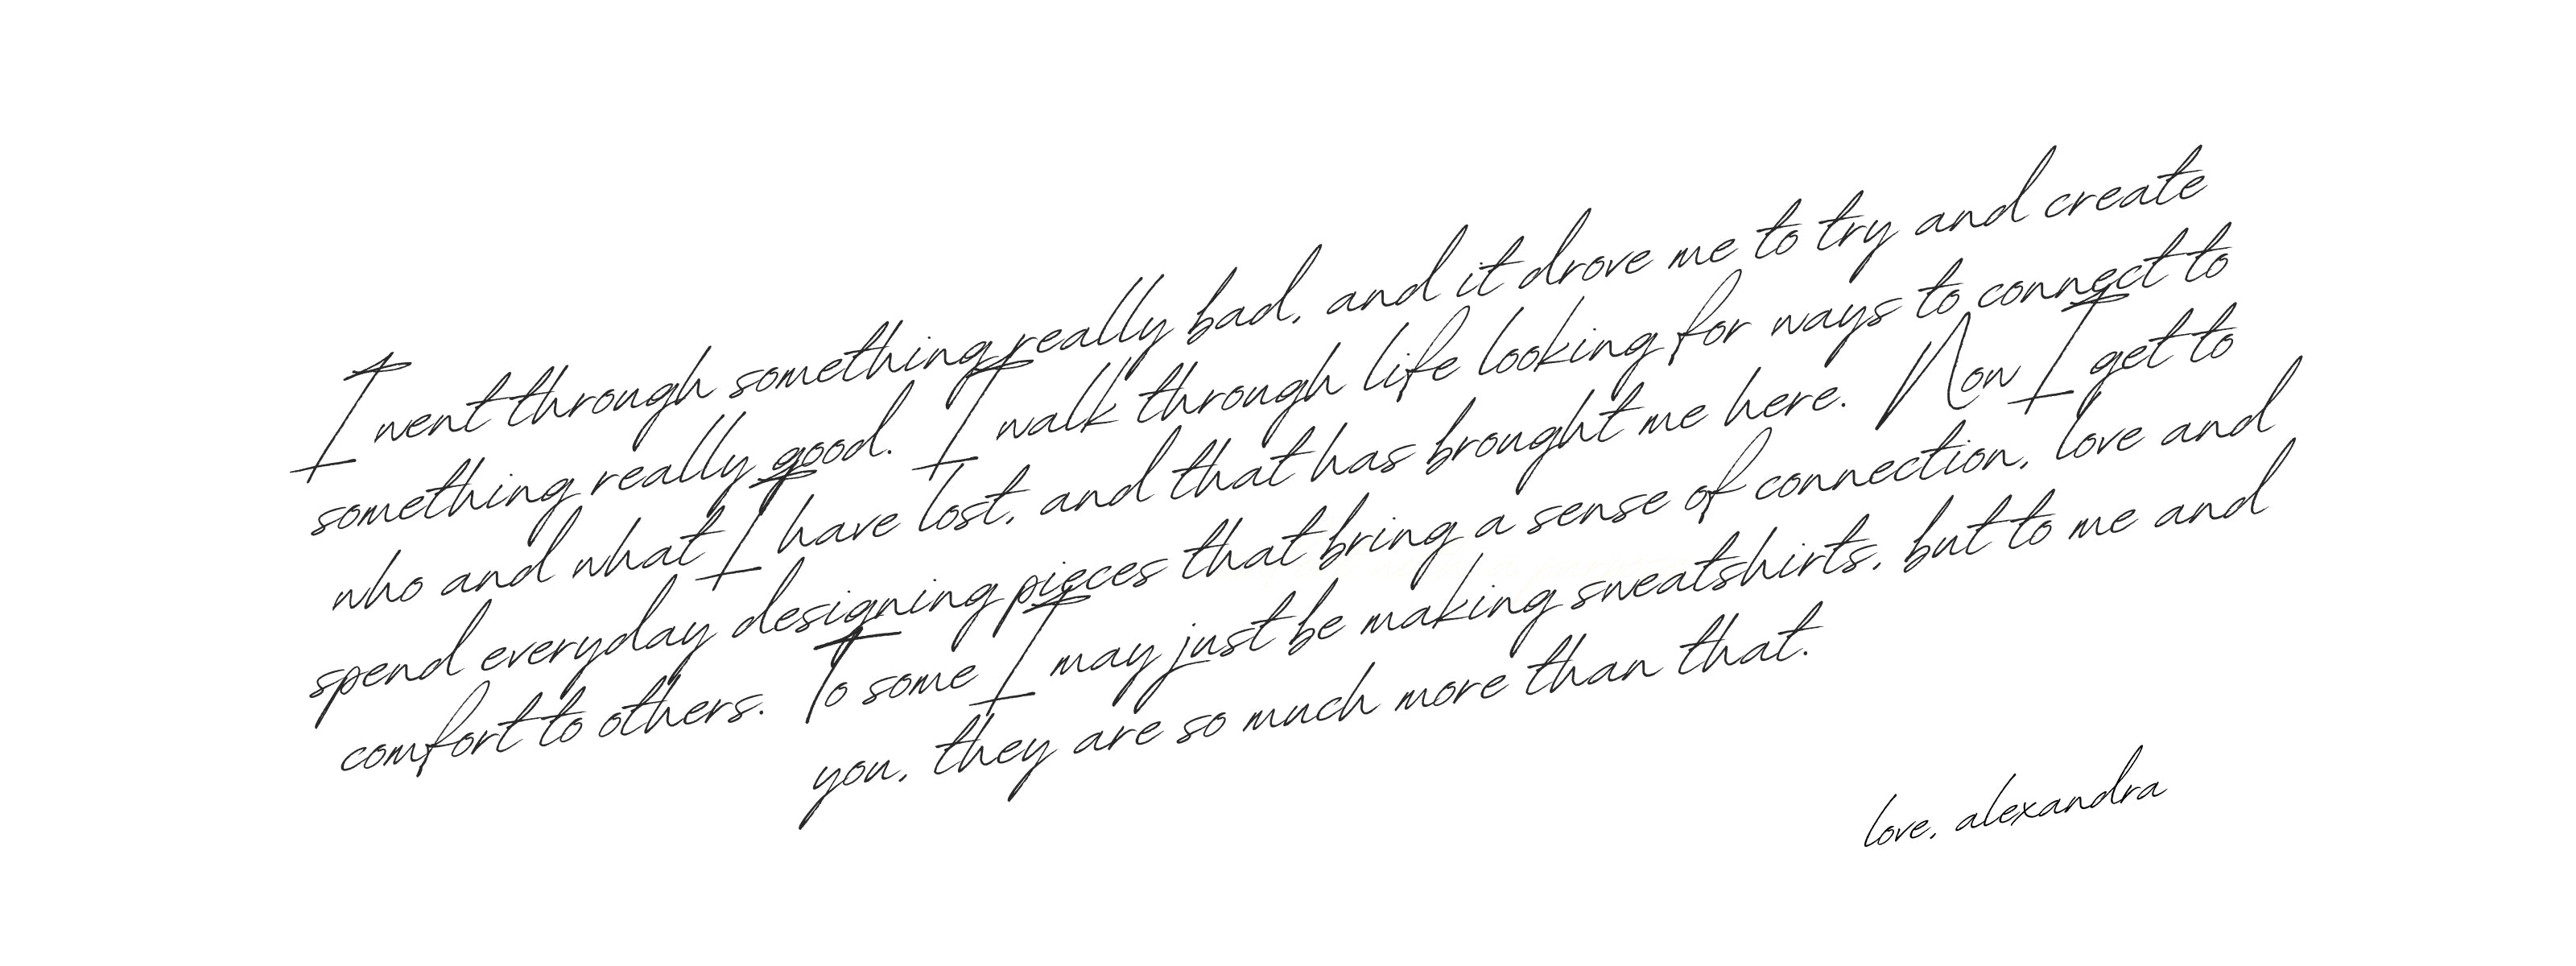 I went through something really bad, and it drove me to try and create
something really good. I walk through life looking for ways to connect to
who and what I have lost, and that has brought me here. Now I get to
spend everyday designing pieces that bring a sense of connection, love and
comfort to others. To some I may just be making sweatshirts, but to me and
you, they are so much more than that.
love, alexandra